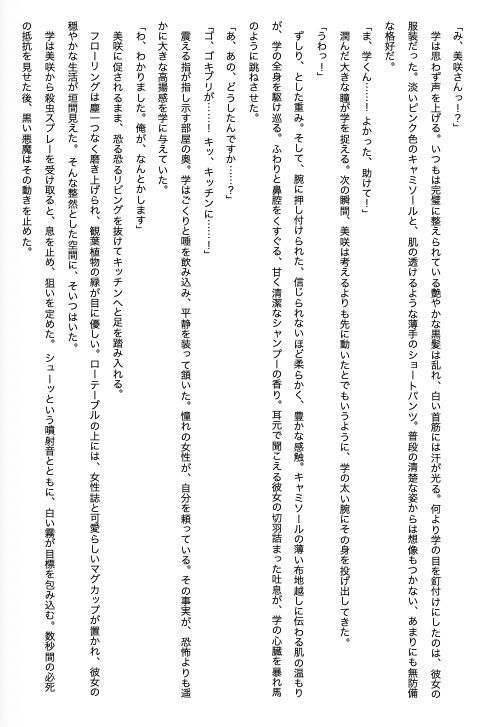 「み、美咲さんっ!?」
　学は思わず声を上げる。いつもは完璧に整えられている艶やかな黒髪は乱れ、白い首筋には汗が光る。何より学の目を釘付けにしたのは、彼女の
服装だった。淡いピンク色のキャミソールと、肌の透けるような薄手のショートパンツ。普段の清楚な姿からは想像もつかない、あまりにも無防備
な格好だ。
「ま、学くん……！よかった、助けて！」
　潤んだ大きな瞳が学を捉える。次の瞬間、美咲は考えるよりも先に動いたとでもいうように、学の太い腕にその身を投げ出してきた。
「うわっ！」
　ずしり、とした重み。そして、腕に押し付けられた、信じられないほど柔らかく、豊かな感触。キャミソールの薄い布地越しに伝わる肌の温もり
が、学の全身を駆け巡る。ふわりと鼻腔をくすぐる、甘く清潔なシャンプーの香り。耳元で聞こえる彼女の切羽詰まった吐息が、学の心臓を暴れ馬
のように跳ねさせた。
「あ、あの、どうしたんですか……？」
「ゴ、ゴキブリが……！キッ、キッチンに……！」
　震える指が指し示す部屋の奥。学はごくりと唾を飲み込み、平静を装って頷いた。憧れの女性が、自分を頼っている。その事実が、恐怖よりも遥
かに大きな高揚感を学に与えていた。
「わ、わかりました。俺が、なんとかします」
　美咲に促されるまま、恐る恐るリビングを抜けてキッチンへと足を踏み入れる。
　フローリングは塵一つなく磨き上げられ、観葉植物の緑が目に優しい。ローテーブルの上には、女性誌と可愛らしいマグカップが置かれ、彼女の
穏やかな生活が垣間見えた。そんな整然とした空間に、そいつはいた。
　学は美咲から殺虫スプレーを受け取ると、息を止め、狙いを定めた。シューッという噴射音とともに、白い霧が目標を包み込む。数秒間の必死
の抵抗を見せた後、黒い悪魔はその動きを止めた。